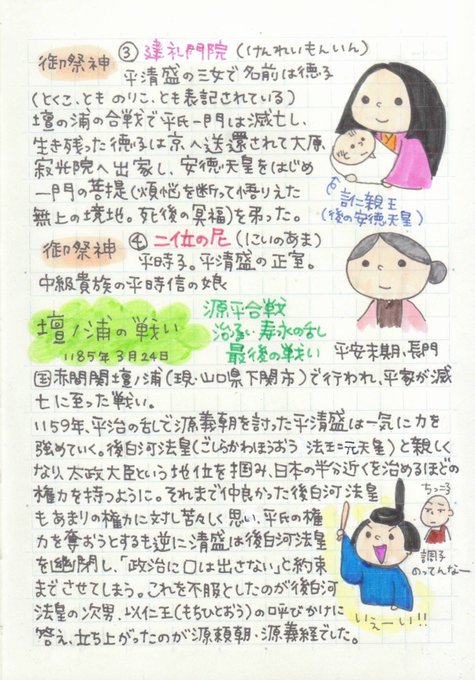 御祭神 ③ 建礼門院 (けんれいもんいん)
平清盛の三女で名前は徳子
(とくこ、とも のりこ、とも表記されている)
壇の浦の合戦で平氏一門は滅亡し、
生き残った徳子は京へ送還されて大原、
寂光院へ出家し、安徳天皇をはじめ
一門の菩提(煩悩を断って悟りえた
無上の境地。死後の冥福)を弔った。
言仁親王
(後の安徳天皇)
御祭神 ④ 二位の尼 (にいのあま)
平時子。平清盛の正室。
中級貴族の平時信の娘
壇ノ浦の戦い
1185年3月24日
源平合戦
治承・寿永の乱
最後の戦い
平安末期、長門
国赤間関壇ノ浦(現・山口県下関市)で行われ、平家が滅
亡に至った戦い。
1159年、平治の乱で源義朝を討った平清盛は一気に力を
強めていく。後白河法皇(ごしらかわほうおう 法王=元天皇)と親しく
なり、太政大臣という地位を掴み、日本の半分近くを治めるほどの
権力を持つように。それまで仲良かった後白河法皇
もあまりの権力に対し苦々しく思い、平氏の権
力を奪おうとするも逆に清盛は後白河法皇
を幽閉し、「政治に口は出さない」と約束
までさせてしまう。これを不服としたのが後白河
法皇の次男、以仁王(もちひとおう)の呼びかけに
答え、立ち上がったのが源頼朝・源義経でした。
ちっころ
調子
のってんなー
いぇーい!!